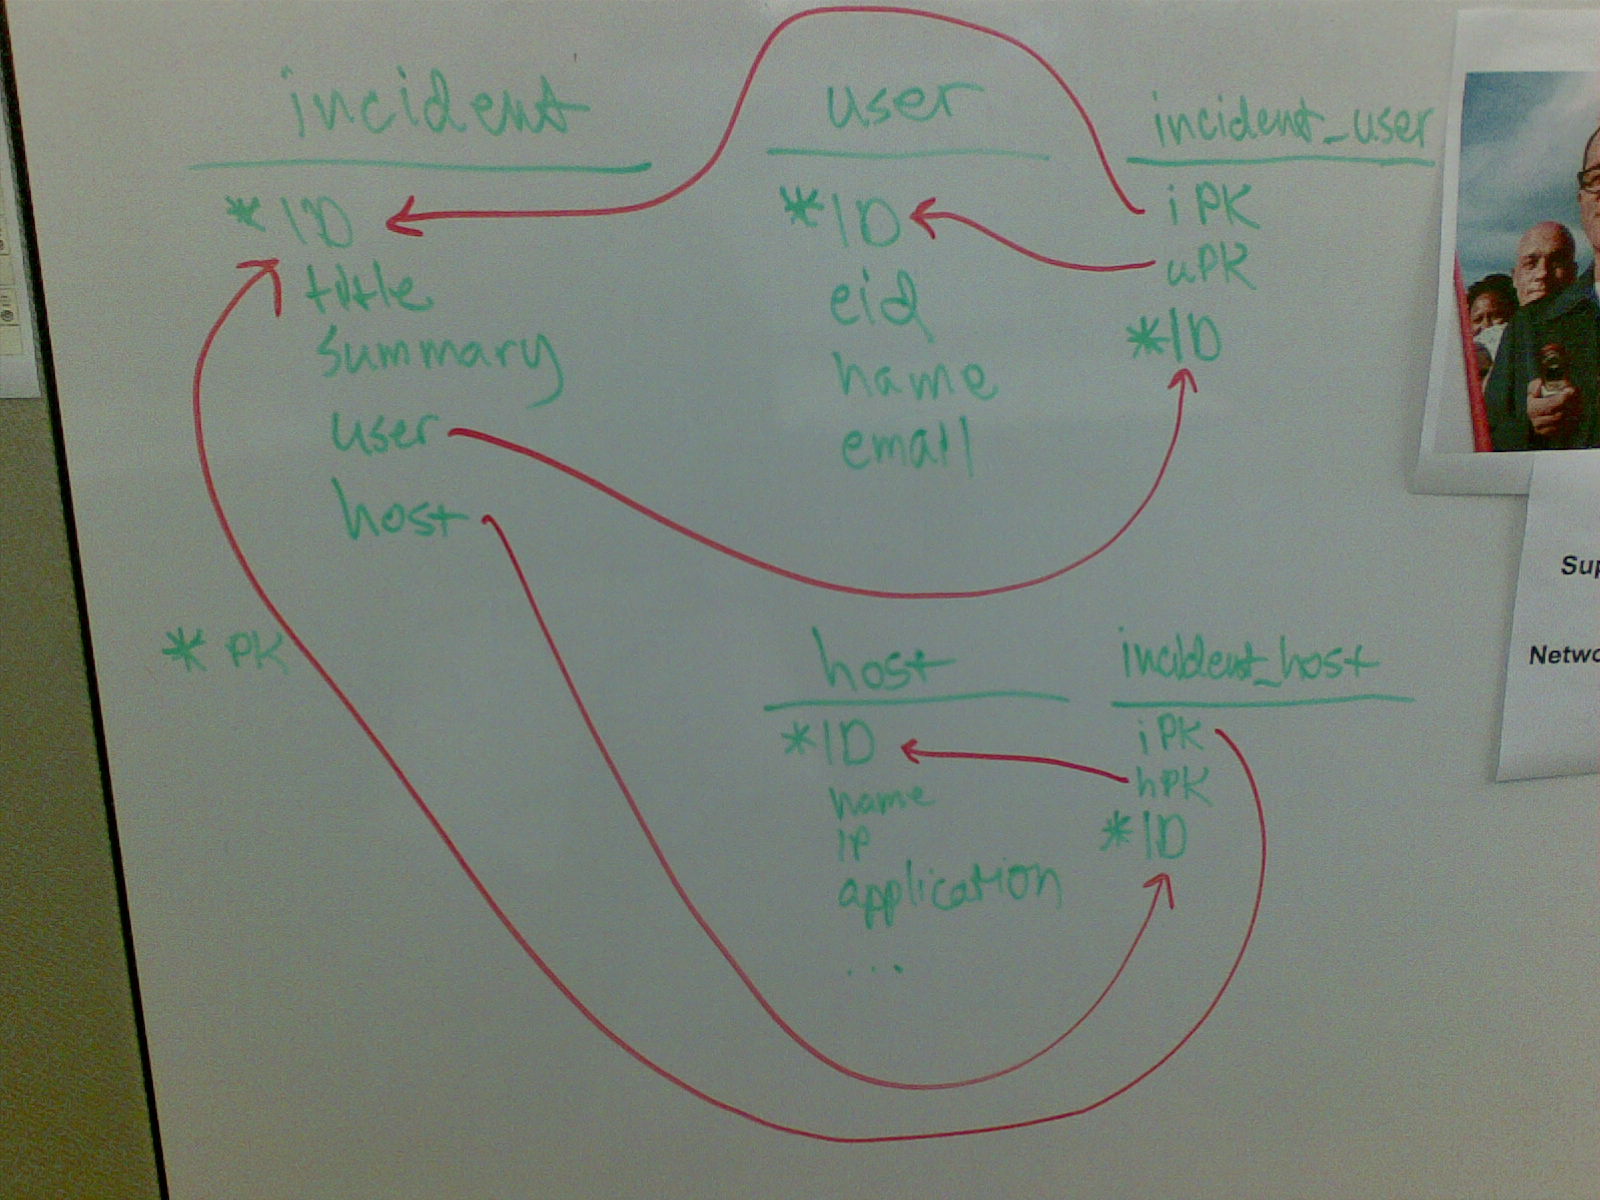 incident
*ID
title
summary
user
host
* PK
user
*ID
eid
name
email
incident_user
iPK
uPK
*ID
host
*ID
name
IP
application
...
incident_host
iPK
hPK
*ID
Sup
Netwo